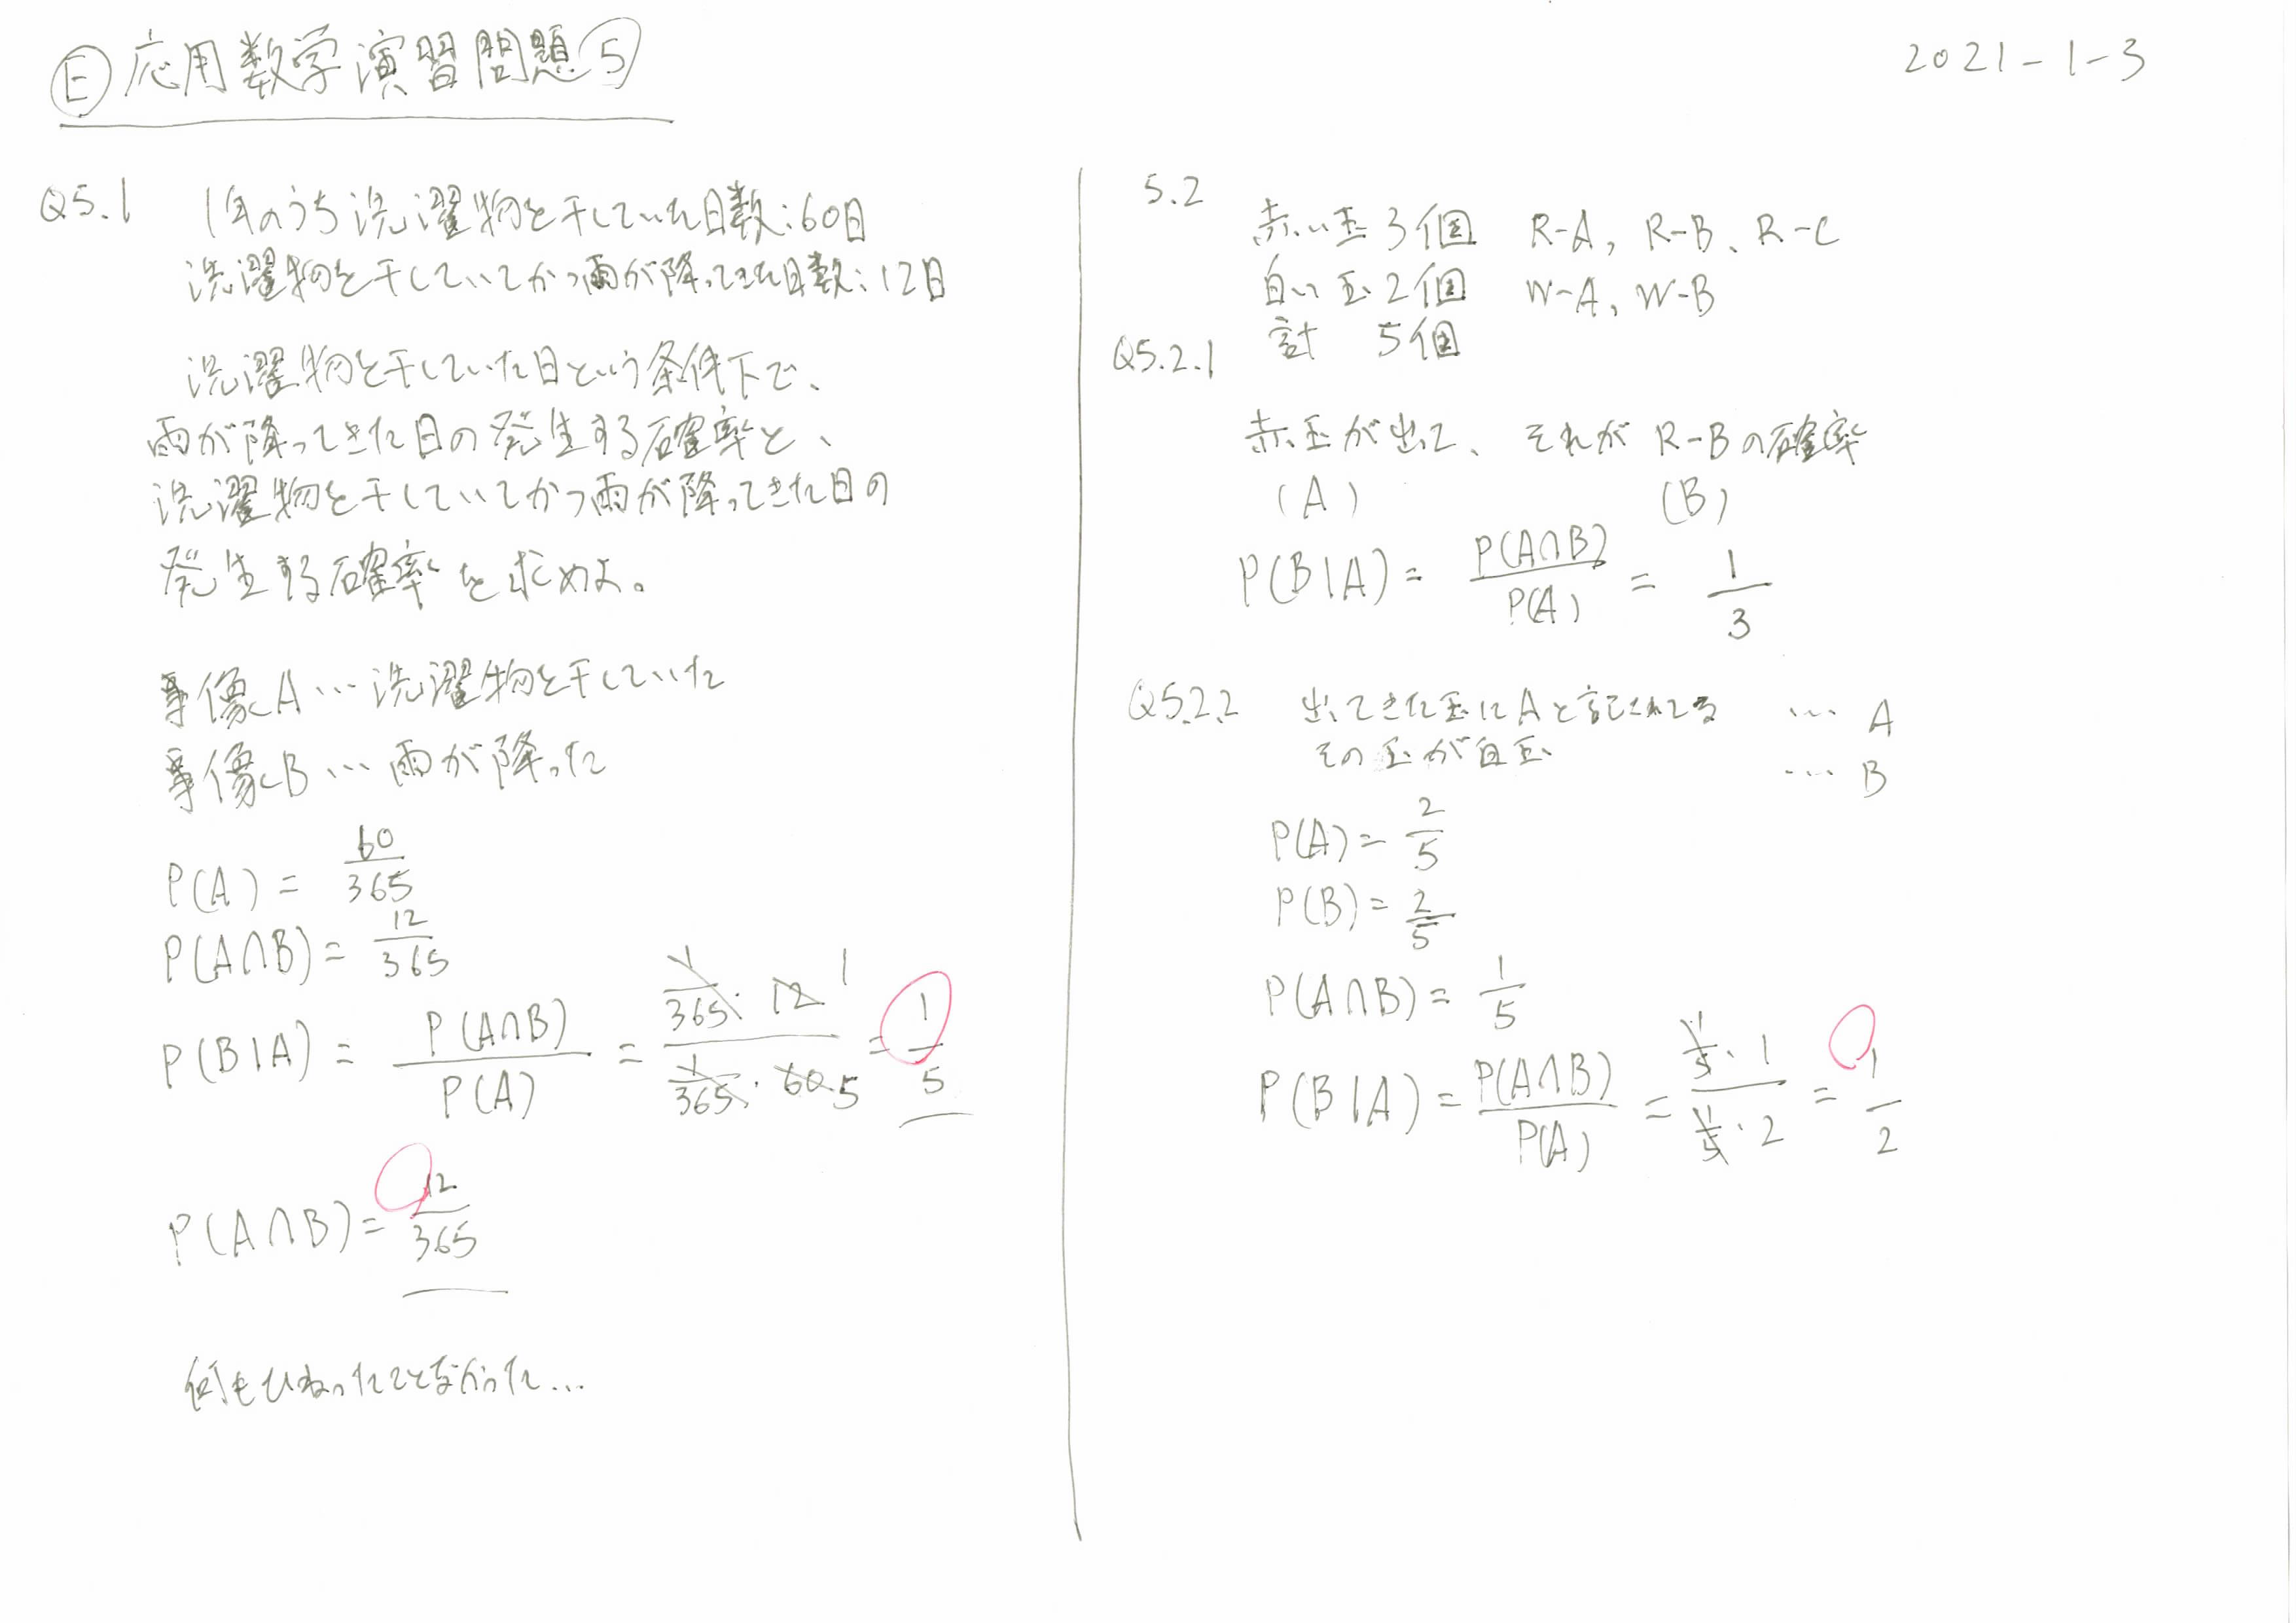 Ⓔ 応用数学演習問題⑤
2021-1-3
Q5.1 1年のうち洗濯物を干していた日数:60日
洗濯物を干していてかつ雨が降ってきた日数:12日
洗濯物を干していた日という条件下で、
雨が降ってきた日の発生する確率と、
洗濯物を干していてかつ雨が降ってきた日の
発生する確率を求めよ。
事像A…洗濯物を干していた
事像B…雨が降った
P(A) = 60/365
P(A∩B) = 12/365
P(B|A) = P(A∩B)/P(A) = (1/365・12 1)/(1/365・60 5) = 1/5
P(A∩B) = 12/365
何もひねったことなかった…
5.2
赤い玉3個 R-A, R-B、R-C
白い玉2個 W-A, W-B
計 5個
Q5.2.1
赤玉が出て、それが R-Bの確率
(A) (B)
P(B|A) = P(A∩B)/P(A) = 1/3
Q5.2.2 出てきた玉にAと記されてる … A
その玉が白玉 … B
P(A) = 2/5
P(B) = 2/5
P(A∩B) = 1/5
P(B|A) = P(A∩B)/P(A) = (1/5・1)/(1/5・2) = 1/2